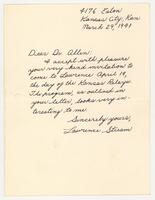 4176 Eaton
Kansas City, Kan
March 29, 1941
Dear Dr. Allen:
I accept with pleasure
your very kind invitation to
come to Lawrence April 19,
the day of the Kansas Relays.
The program, as outlined in
your letter, looks very in-
teresting to me.
Sincerely yours,
Lawrence